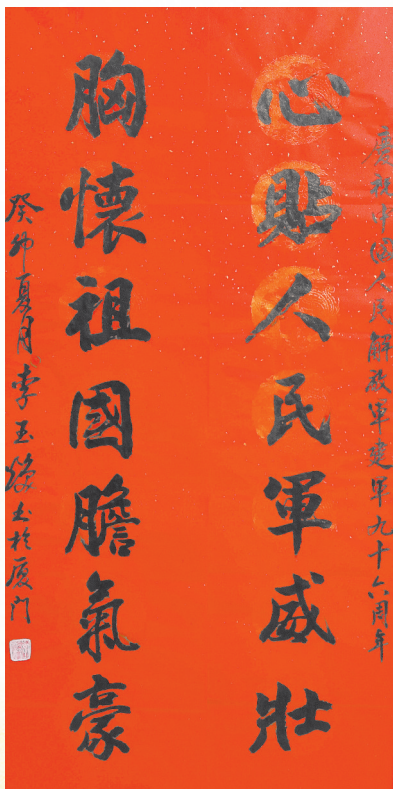 慶祝中國人民解放軍建軍九十六周年
心貼人民軍威壯
胸懷祖國膽氣豪
癸卯夏月李玉
書於厦门